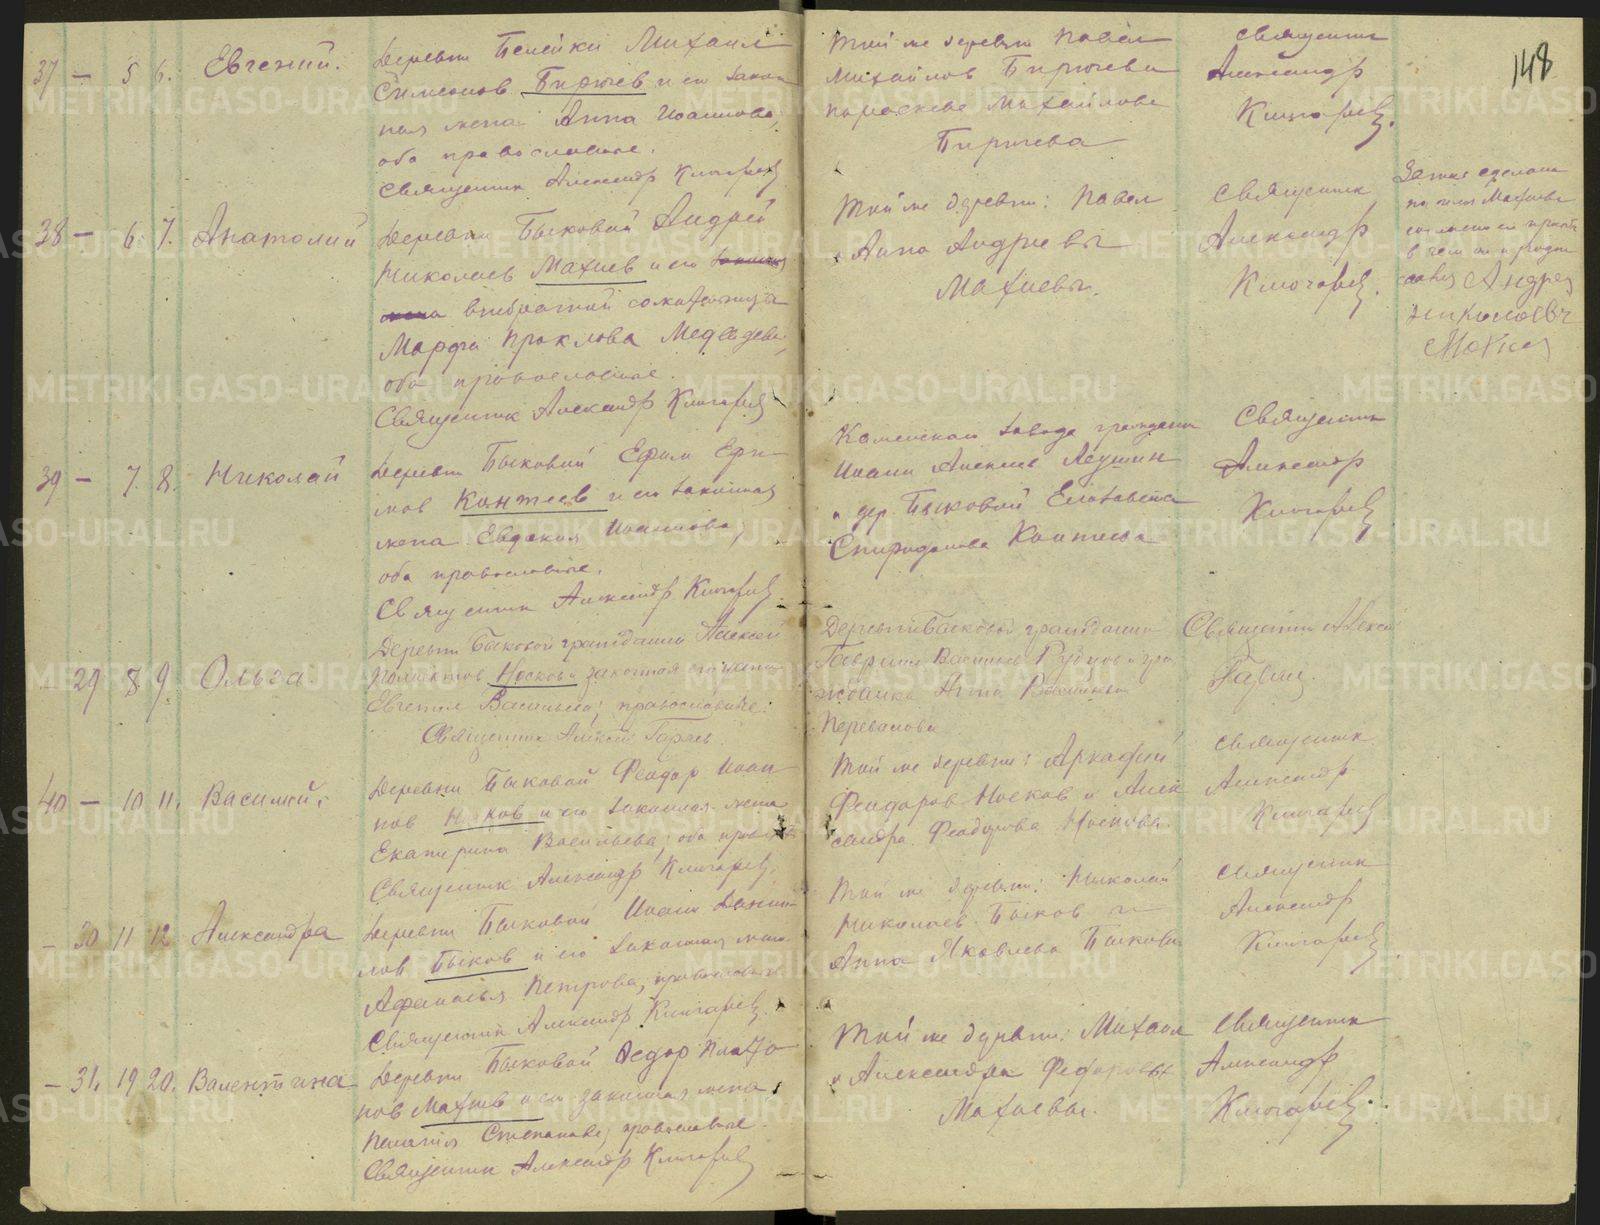 148
37 — 5 6. Евгений.
Деревни Белейки Михаил
Симеонов Бирючев и его закон
ная жена Анна Иоаннова,
оба православные.
Священник Александр Ключарев
Той же деревни Павел
Михайлов Бирючев и
Параскева Михайлова
Бирючева
Священник
Александр
Ключарев.
38 — 6. 7. Анатолий
Деревни Быковой Андрей
Николаев Махнев и его
внебрачная сожительница
Марфа Проклова Медведева,
оба православные.
Священник Александр Ключарев
Той же деревни: Павел
и Анна Андреевы
Махневы.
Священник
Александр
Ключарев.
Запись сделана
на имя Махнева
согласно его
в чем и
Андрей
Николаевич
Махнев
39 — 7. 8. Николай
Деревни Быковой Ефим Ефи
мов Коптеев и его законная
жена Евдокия Иоаннова,
оба православные.
Священник Александр Ключарев
Каменского завода гражданин
Иоанн Алексеев
и дер. Быковой Елизавета
Спиридонова Коптева
Священник
Александр
Ключарев
— 29 8 9. Ольга.
Деревни Быковой гражданин Алексей
Носков законная его жена
Евгения Васильева, православные.
Священник Алексей
Деревни Быковой гражданин
Гавриил Васильев и гра
жданка Анна
Перевалова
Священник Алексей
40 — 10 11. Василий.
Деревни Быковой Феодор Иоан
нов Носков и его законная жена
Екатерина Васильева, оба правосл.
Священник Александр Ключарев.
Той же деревни: Аркадий
Феодоров Носков и Алек
сандра Феодорова Носкова.
Священник
Александр
Ключарев
— 30 11 12 Александра
Деревни Быковой Иоанн Дании
лов Быков и его законная жена
Афанасия Петрова, православные
Священник Александр Ключарев.
Той же деревни: Николай
Николаев Быков и
Анна Яковлева Быкова
Священник
Александр
Ключарев
— 31. 19 20. Валентина
Деревни Быковой Федор Плато
нов Махнев и его законная жена
Пелагия Степанова, православные.
Священник Александр Ключарев
Той же деревни: Михаил
и Александра Федоровы
Махневы.
Священник
Александр
Ключарев.
METRIKI.GASO-URAL.RU